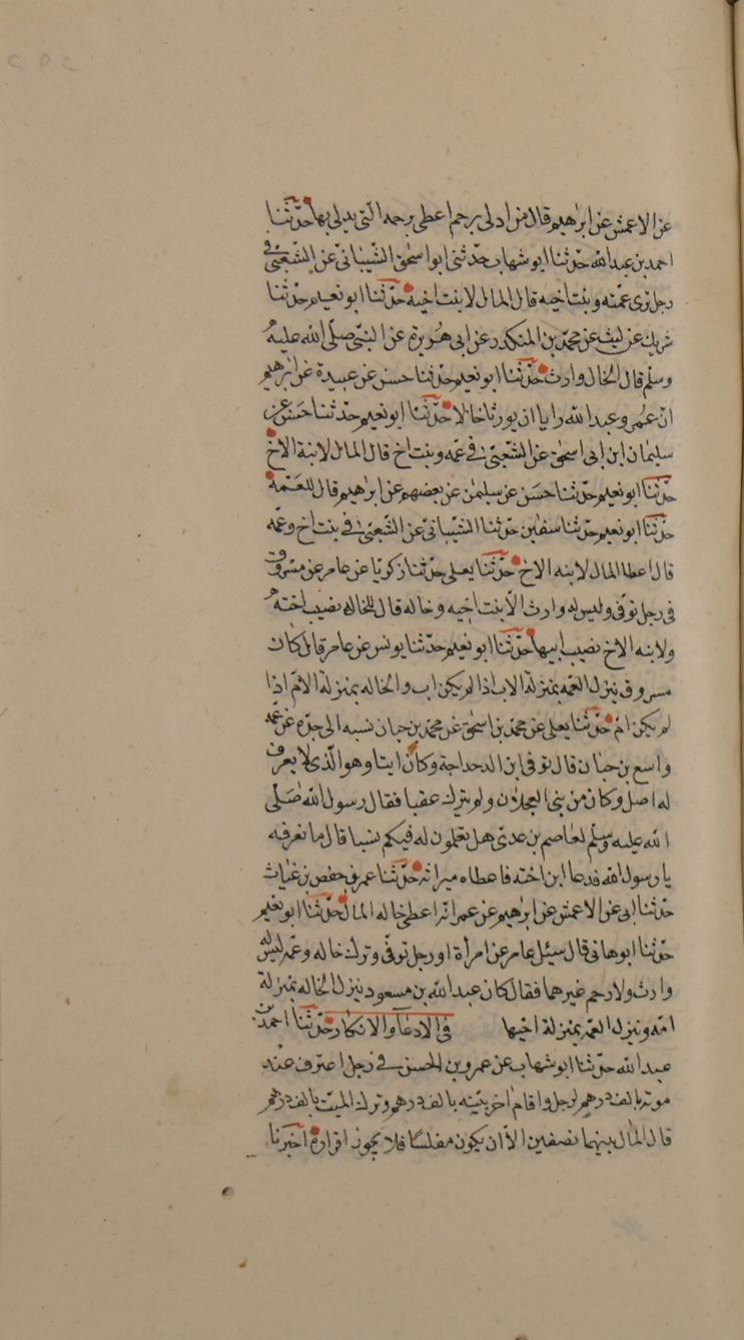 عن الاعمش عن ابرهيم قال من ادلى برحم اعطى برحمه التى يدلى بها حدّثنا
احمد بن عبد الله حدّثنا ابو شهاب حدثنى ابو اسحٰق الشّيبانىّ عن الشّعبىّ فى
رجل ترك عمّته وبنت اخيه قال المال لابنت اخيه حدّثنا ابو نعيم حدّثنا
شريك عن ليث عن محمّد بن المنكدر عن ابى هريرة عن النبىّ صلّى الله عليه
وسلّم قال الخال وارث حدّثنا ابو نعيم حدّثنا حسن عن عبيدة عن ابرهيم
انّ عمر وعبد الله رايا ان يورثا خالا حدّثنا ابو نعيم حدّثنا حسن عن
سليمان ابن ابى اسحٰق عن الشّعبىّ فى عمّه وبنت اخ قال المال لابنة الاخ
حدّثنا ابو نعيم حدّثنا حسن عن سليمٰن عن بعضهم عن ابرهيم قال للعمّة
حدّثنا ابو نعيم حدّثنا سفيٰن حدّثنا الشّيبانىّ عن الشّعبىّ فى بنت اخ وعمّه
قال اعطا المال لابنه الاخ حدّثنا يعلى حدّثنا زكريّا عن عامر عن مسروق
فى رجل توفّى وليس له وارث الّا بنت اخيه وخاله قال للخاله نصيب اخته
ولابنه الاخ نصيب ابيها حدّثنا ابو نعيم حدّثنا يونس عن عامر قال كان
مسروق ينزل العمّه بمنزلة الاب اذا لم يكن اب والخاله بمنزلة الامّ اذا
لم يكن امّ حدّثنا يعلى عن محمّد بن اسحٰق عن محمّد بن حبان نسبه الى جدّه عن عمّه
واسع بن حبّان قال توفى ابن الدحداحة وكان ايتا وهو الّذى لا يعرف
له اصل وكان من بنى العجلان ولم يترك عقبا فقال رسول الله صلّى
الله عليه وسلّم لعاصم بن عدىّ هل تعلمون له فيكم نسبا قال ما نعرفه
يا رسول الله فدعا ابن اخته فاعطاه ميراثه حدّثنا عمر بن حفص بن غياث
حدّثنا ابى عن الاعمش عن ابرهيم عن عمر انّه اعطى خاله المال حدّثنا ابو نعيم
حدّثنا ابو هانى قال سيئل عامر عن امرأة او رجل توفّى وترك خاله وعمّه ليس له
وارث ولا رحم غيرهما فقال كان عبد الله بن مسعود ينزل الخاله بمنزلة
امّه وينزل العمّه بمنزلة اخيها فى الادعآء والانكار حدّثنا احمد بن
عبد الله حدّثنا ابو شهاب عن عمرو بن الحسن فى رجل اعترف عند
موته بالف درهم لرجل واقام اخر بيّنه بالف درهم وترك الميّت بالف درهم
قال المال بينهما نصفين الّا ان يكون مفلسًا فلا يجوز اقراره اخبرنا